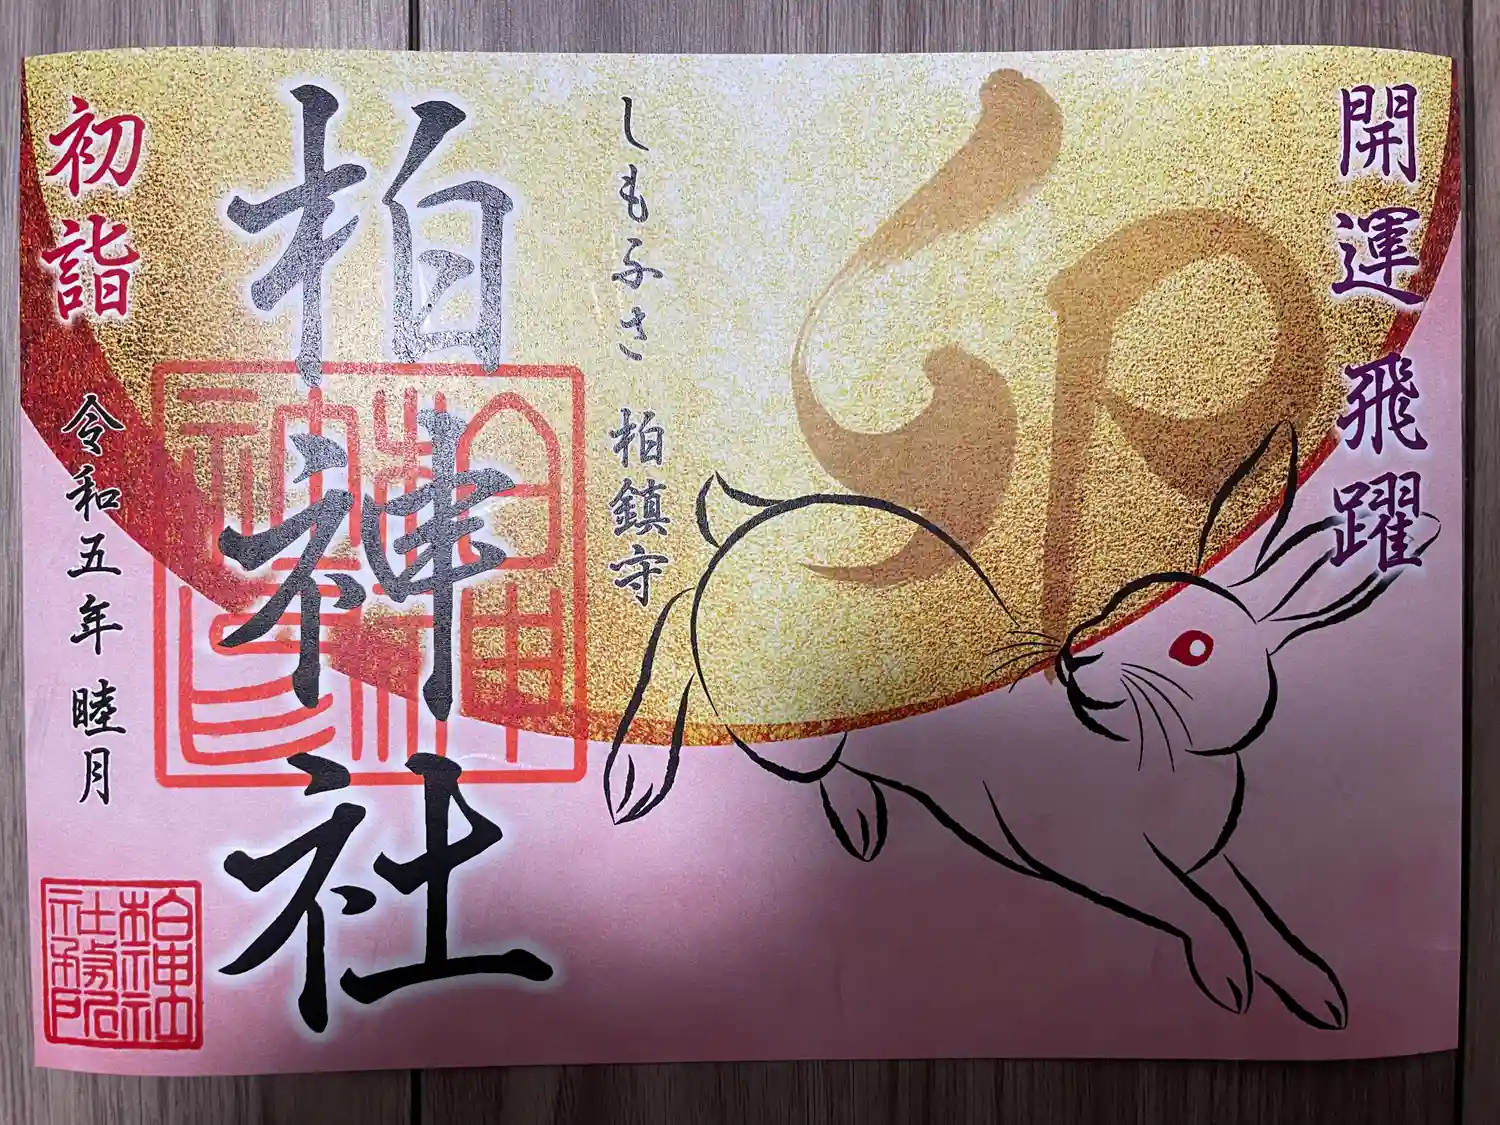 開運飛躍
卯
しもふさ 柏鎮守
柏神社
初詣
令和五年 睦月
柏神社
社務所